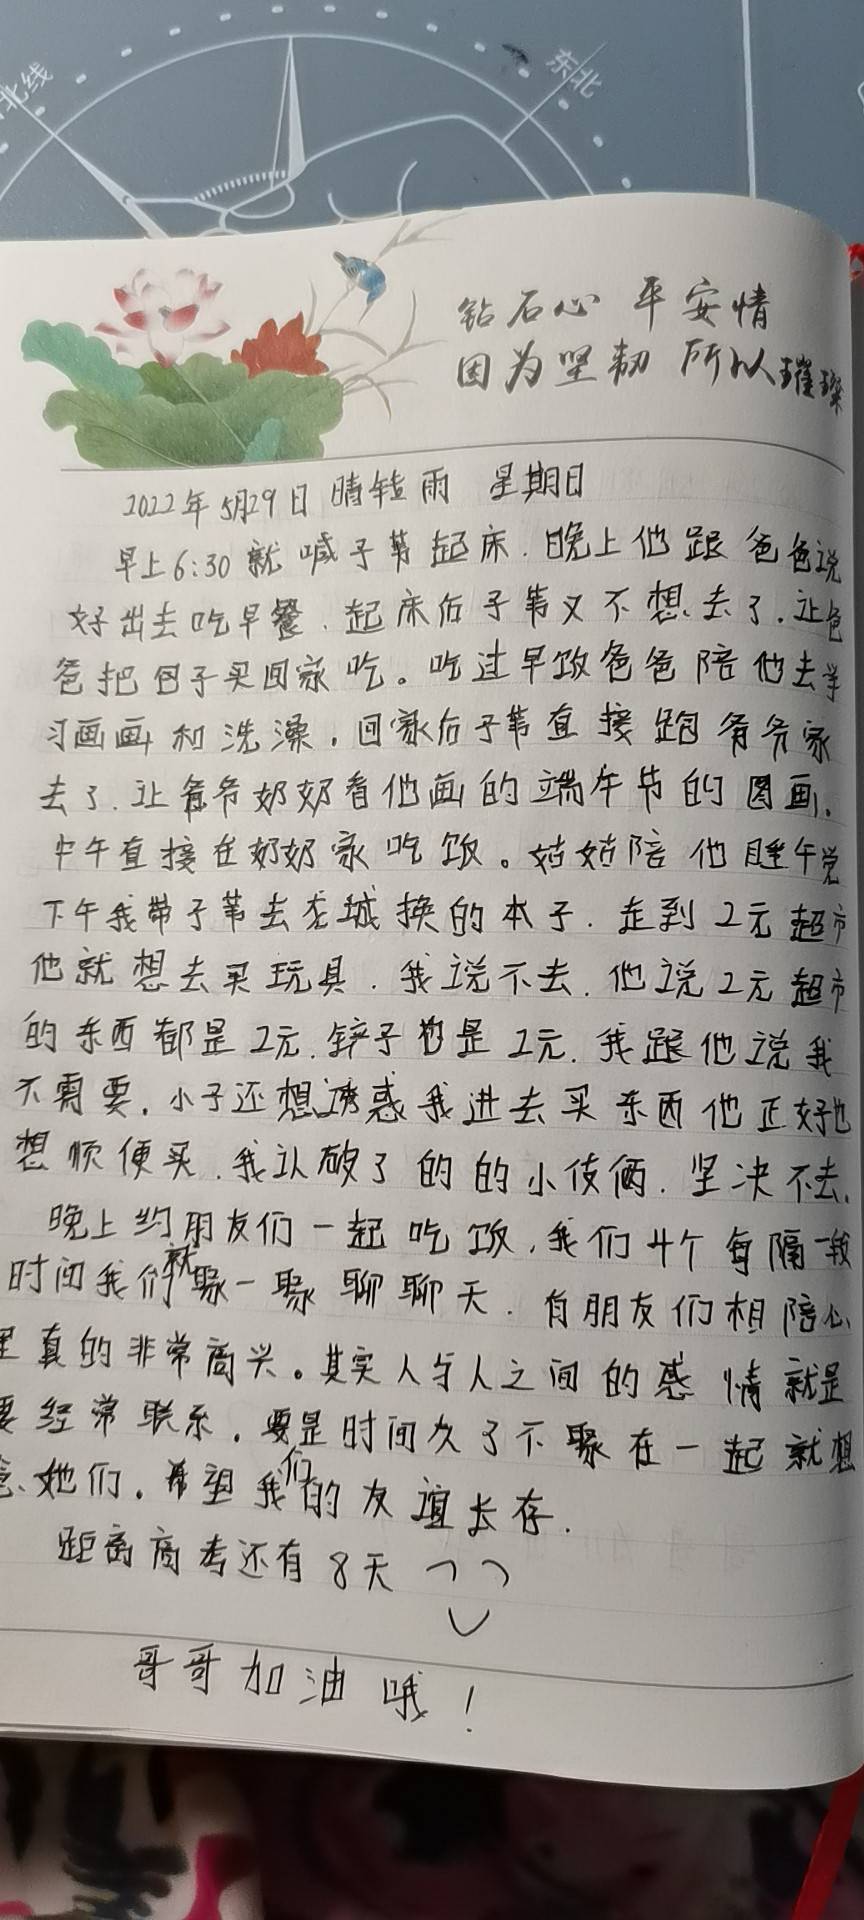 北线
东北
钻石心 平安情
因为坚韧 所以璀璨
2022年5月29日 晴转雨 星期日
早上6:30就喊子苇起床.晚上他跟爸爸说
好出去吃早餐.起床后子苇又不想去了.让爸
爸把包子买回家吃。吃过早饭爸爸陪他去学
习画画和洗澡.回家后子苇直接跑爷爷家
去了.让爷爷奶奶看他画的端午节的图画.
中午直接在奶奶家吃饭。姑姑陪他睡午觉
下午我带子苇去龙城换的本子.走到2元超市
他就想去买玩具.我说不去.他说2元超市
的东西都是2元.铲子也是2元.我跟他说我
不需要.小子还想诱惑我进去买东西他正好也
想顺便买.我认破了的的小伎俩.坚决不去.
晚上约朋友们一起吃饭.我们4个每隔一段
时间我们就聚一聚聊聊天.有朋友们相陪心
里真的非常高兴。其实人与人之间的感情就是
要经常联系.要是时间久了不聚在一起就想
念她们.希望我们的友谊长存.
距离高考还有8天
哥哥加油哦!